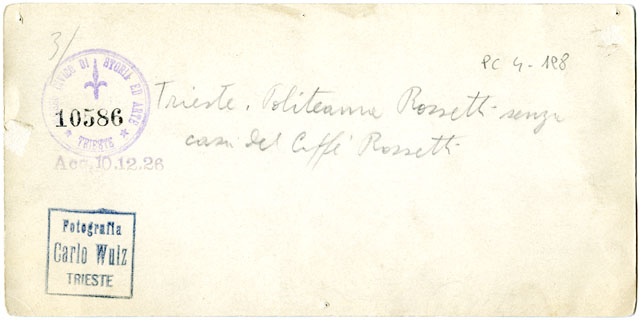 3/
PC 4-198
CIVICO DI STORIA ED ARTE
10586
* TRIESTE *
Acq. 10.12.26
Trieste. Politeama Rossetti senza
casa del Caffè Rossetti
Fotografia
Carlo Wulz
TRIESTE